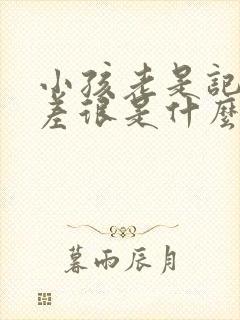 小孩老是記
差很是什麼
暮雨辰月